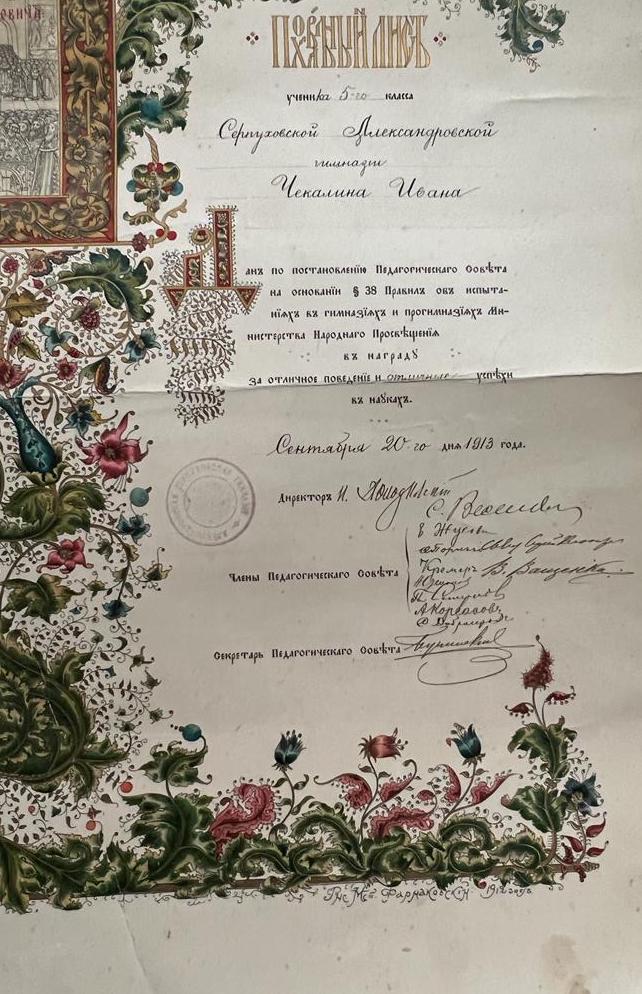 ОВИЧА
ПОХВАЛЬНЫЙ ЛИСТЪ
ученика 5-го класса
Серпуховской Александровской
гимназіи
Чекалина Ивана
Данъ по постановленію Педагогическаго Совѣта
на основаніи § 38 Правилъ объ испыта-
ніяхъ въ гимназіяхъ и прогимназіяхъ Ми-
нистерства Народнаго Просвѣщенія
въ награду
за отличное поведеніе и отличные успѣхи
въ наукахъ.
Сентября 20-го дня 1913 года.
Директоръ И.
С.
Е.
Члены Педагогическаго Совѣта Кремеръ В. Ващенко
П.
А.
Секретарь Педагогическаго Совѣта
Рис. Мст. Фармаковскій 1912 года